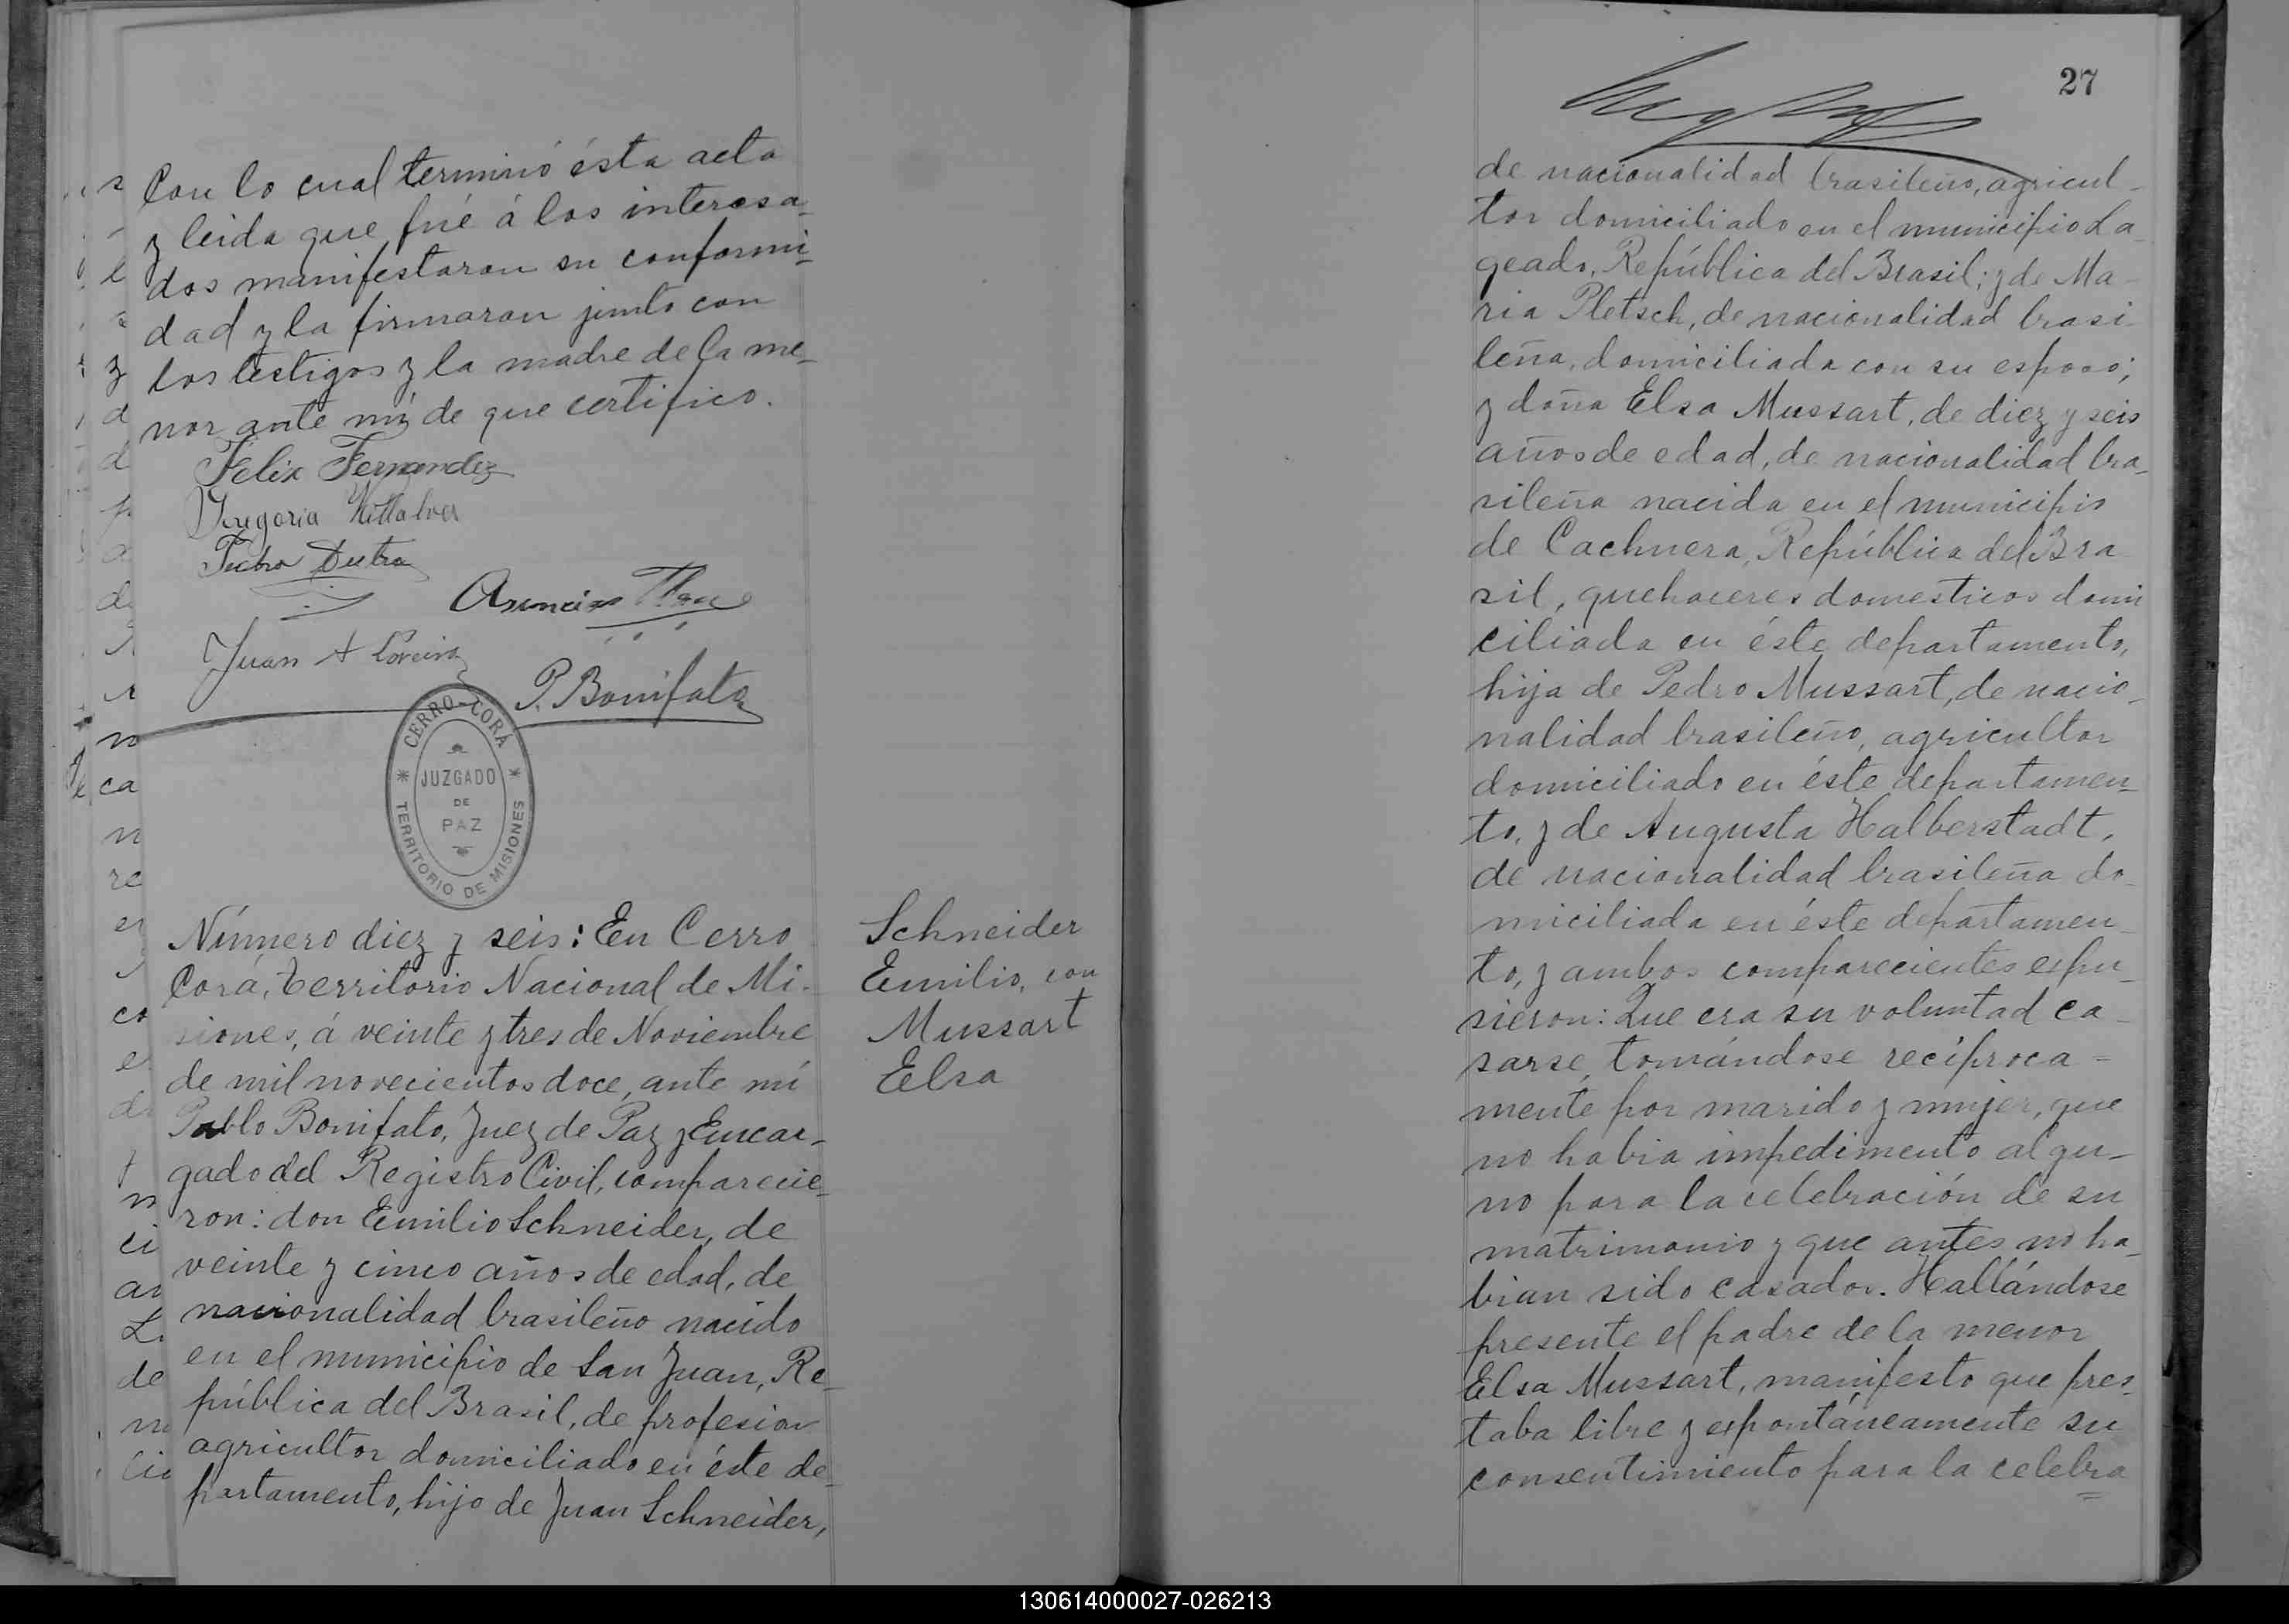 Con lo cual terminó ésta acta
y leida que fué á los interesa-
dos manifestaron su conformi-
dad y la firmaron junto con
los testigos y la madre de la me-
nor ante mí de que certifico.
Felix Fernandez
Gregoria Villalva
Pedro Dutra
Asuncion
Juan A
P. Bonifato
CERRO-CORÁ
JUZGADO
DE
PAZ
TERRITORIO DE MISIONES
Número diez y seis: En Cerro
Corá, territorio Nacional de Mi-
siones, á veinte y tres de Noviembre
de mil novecientos doce, ante mí
Pablo Bonifato, Juez de Paz y Encar-
gado del Registro Civil, comparecie-
ron: don Emilio Schneider, de
veinte y cinco años de edad, de
nacionalidad brasileño nacido
en el municipio de San Juan, Re-
pública del Brasil, de profesion
agricultor domiciliado en éste de-
partamento, hijo de Juan Schneider,
Schneider
Emilio, con
Mussart
Elsa
27
de nacionalidad brasileño, agricul-
tor domiciliado en el municipio La-
geado, República del Brasil; y de Ma-
ria Pletsch, de nacionalidad brasi-
leña, domiciliada con su esposo;
y doña Elsa Mussart, de diez y seis
años de edad, de nacionalidad bra-
sileña nacida en el municipio
de Cachuera, República del Bra
sil, quehaceres domesticos domi
ciliada en éste departamento,
hija de Pedro Mussart, de nacio-
nalidad brasileño, agricultor
domiciliado en éste departamen-
to, y de Augusta Halberstadt,
de nacionalidad brasileña do-
miciliada en éste departamen-
to, y ambos comparecientes expu-
sieron: Que era su voluntad ca-
sarse, tomándose recíproca=
mente por marido y mujer, que
no habia impedimento algu-
no para la celebración de su
matrimonio y que antes no ha-
bian sido casados. Hallándose
presente el padre de la menor
Elsa Mussart, manifesto que pres-
taba libre y expontáneamente su
consentimiento para la celebra
130614000027-026213